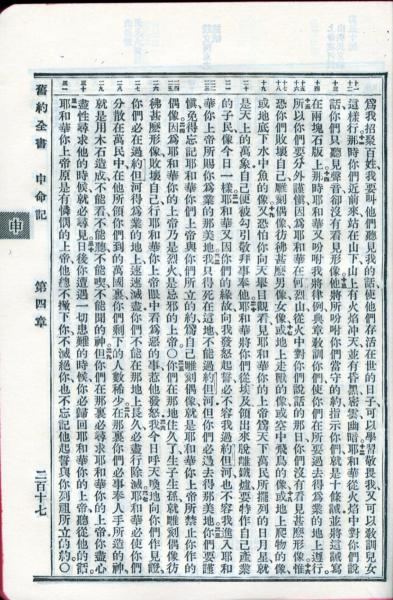 爲我招聚百姓我要叫他們聽見我的話使他們存活在世的日子可以學習敬畏我又可以敎訓兒女
這樣行那時你們近前來站在山下山上有火焰冲天並有昏黑密雲幽暗耶和華從火焰中對你們說
話你們只聽見聲音卻沒有看見形像他將所吩咐你們當守的約指示你們就是十條誡並將這誡寫
在兩塊石版上那時耶和華又吩咐我將律例典章敎訓你們使你們在所要過去得爲業的地上遵行
所以你們要分外謹愼因爲耶和華在何烈山從火中對你們說話的那日你們沒有看見甚麽形像惟
恐你們敗壞自己雕刻偶像彷彿甚麽男像女像或地上走獸的像或空中飛鳥的像或地上爬物的像
或地底下水中魚的像又恐怕你向天舉目觀看見耶和華你的上帝爲天下萬民所擺列的日月星就
是天上的萬象自己便被勾引敬拜事奉他耶和華將你們從埃及領出來脫離鐵爐要特作自己產業
的子民像今日一樣耶和華又因你們的緣故向我發怒起誓必不容我過約但河也不容我進入耶和
華你上帝所賜你爲業的那美地我只得死在這地不能過約但河但你們必過去得那美地你們要謹
愼免得忘記耶和華你們上帝與你們所立的約爲自己雕刻偶像就是耶和華你上帝所禁止你作的
偶像因爲耶和華你的上帝乃是烈火是忌邪的上帝○你們在那地住久了生子生孫就雕刻偶像彷
彿甚麽形像敗壞自己行耶和華你上帝眼中看爲惡的事惹他發怒我今日呼天喚地向你們作見證
你們必在過約但河得爲業的地上速速滅盡你們不能在那地上長久必盡行除滅耶和華必使你們
分散在萬民中在他所領你們到的萬國裏你們剩下的人數稀少在那裏你們必事奉人手所造的神
就是用木石造成不能看不能聽不能喫不能聞的神但你們在那裏必尋求耶和華你的上帝你盡心
盡性尋求他的時候就必尋見日後你遭遇一切患難的時候你必歸回耶和華你的上帝聽從他的話
耶和華你上帝原是有憐憫的上帝他總不撇下你不滅絕你也不忘記他起誓與你列祖所立的約○
舊約全書 申命記 第四章 二百十七
申